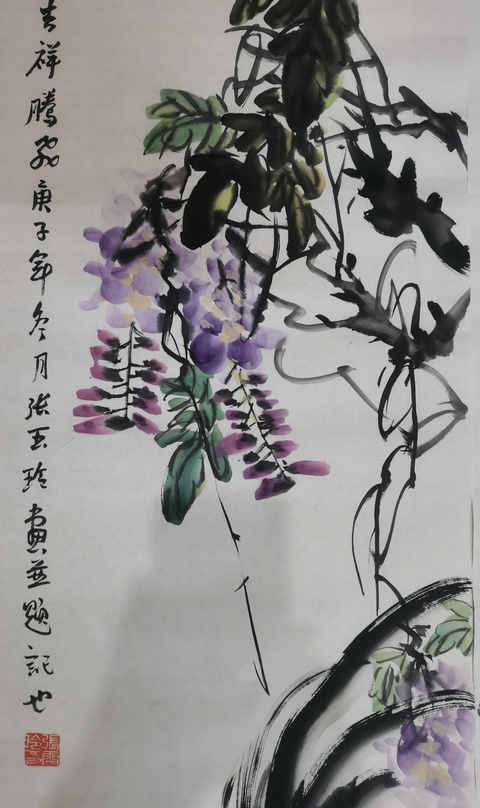 吉祥腾飞庚子年冬月张玉玲画并题记也